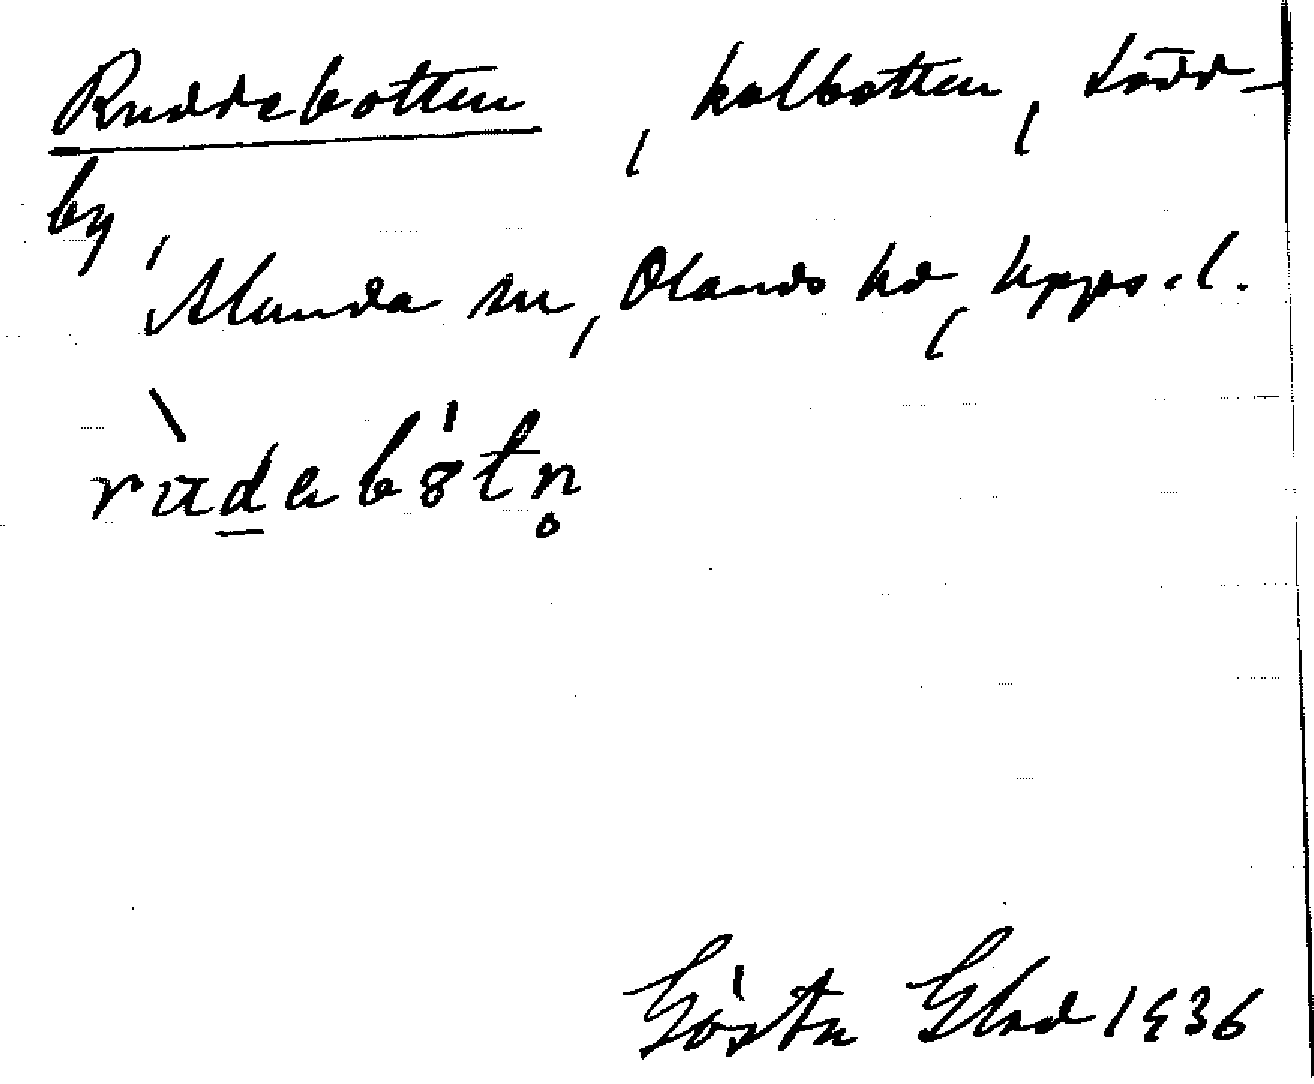 Ruddebotten, kolbotten, Lödd-
by,
Alunda sn, Olands hd, Upps. l.
rùdebòtn̥
Gösta Glad 1936